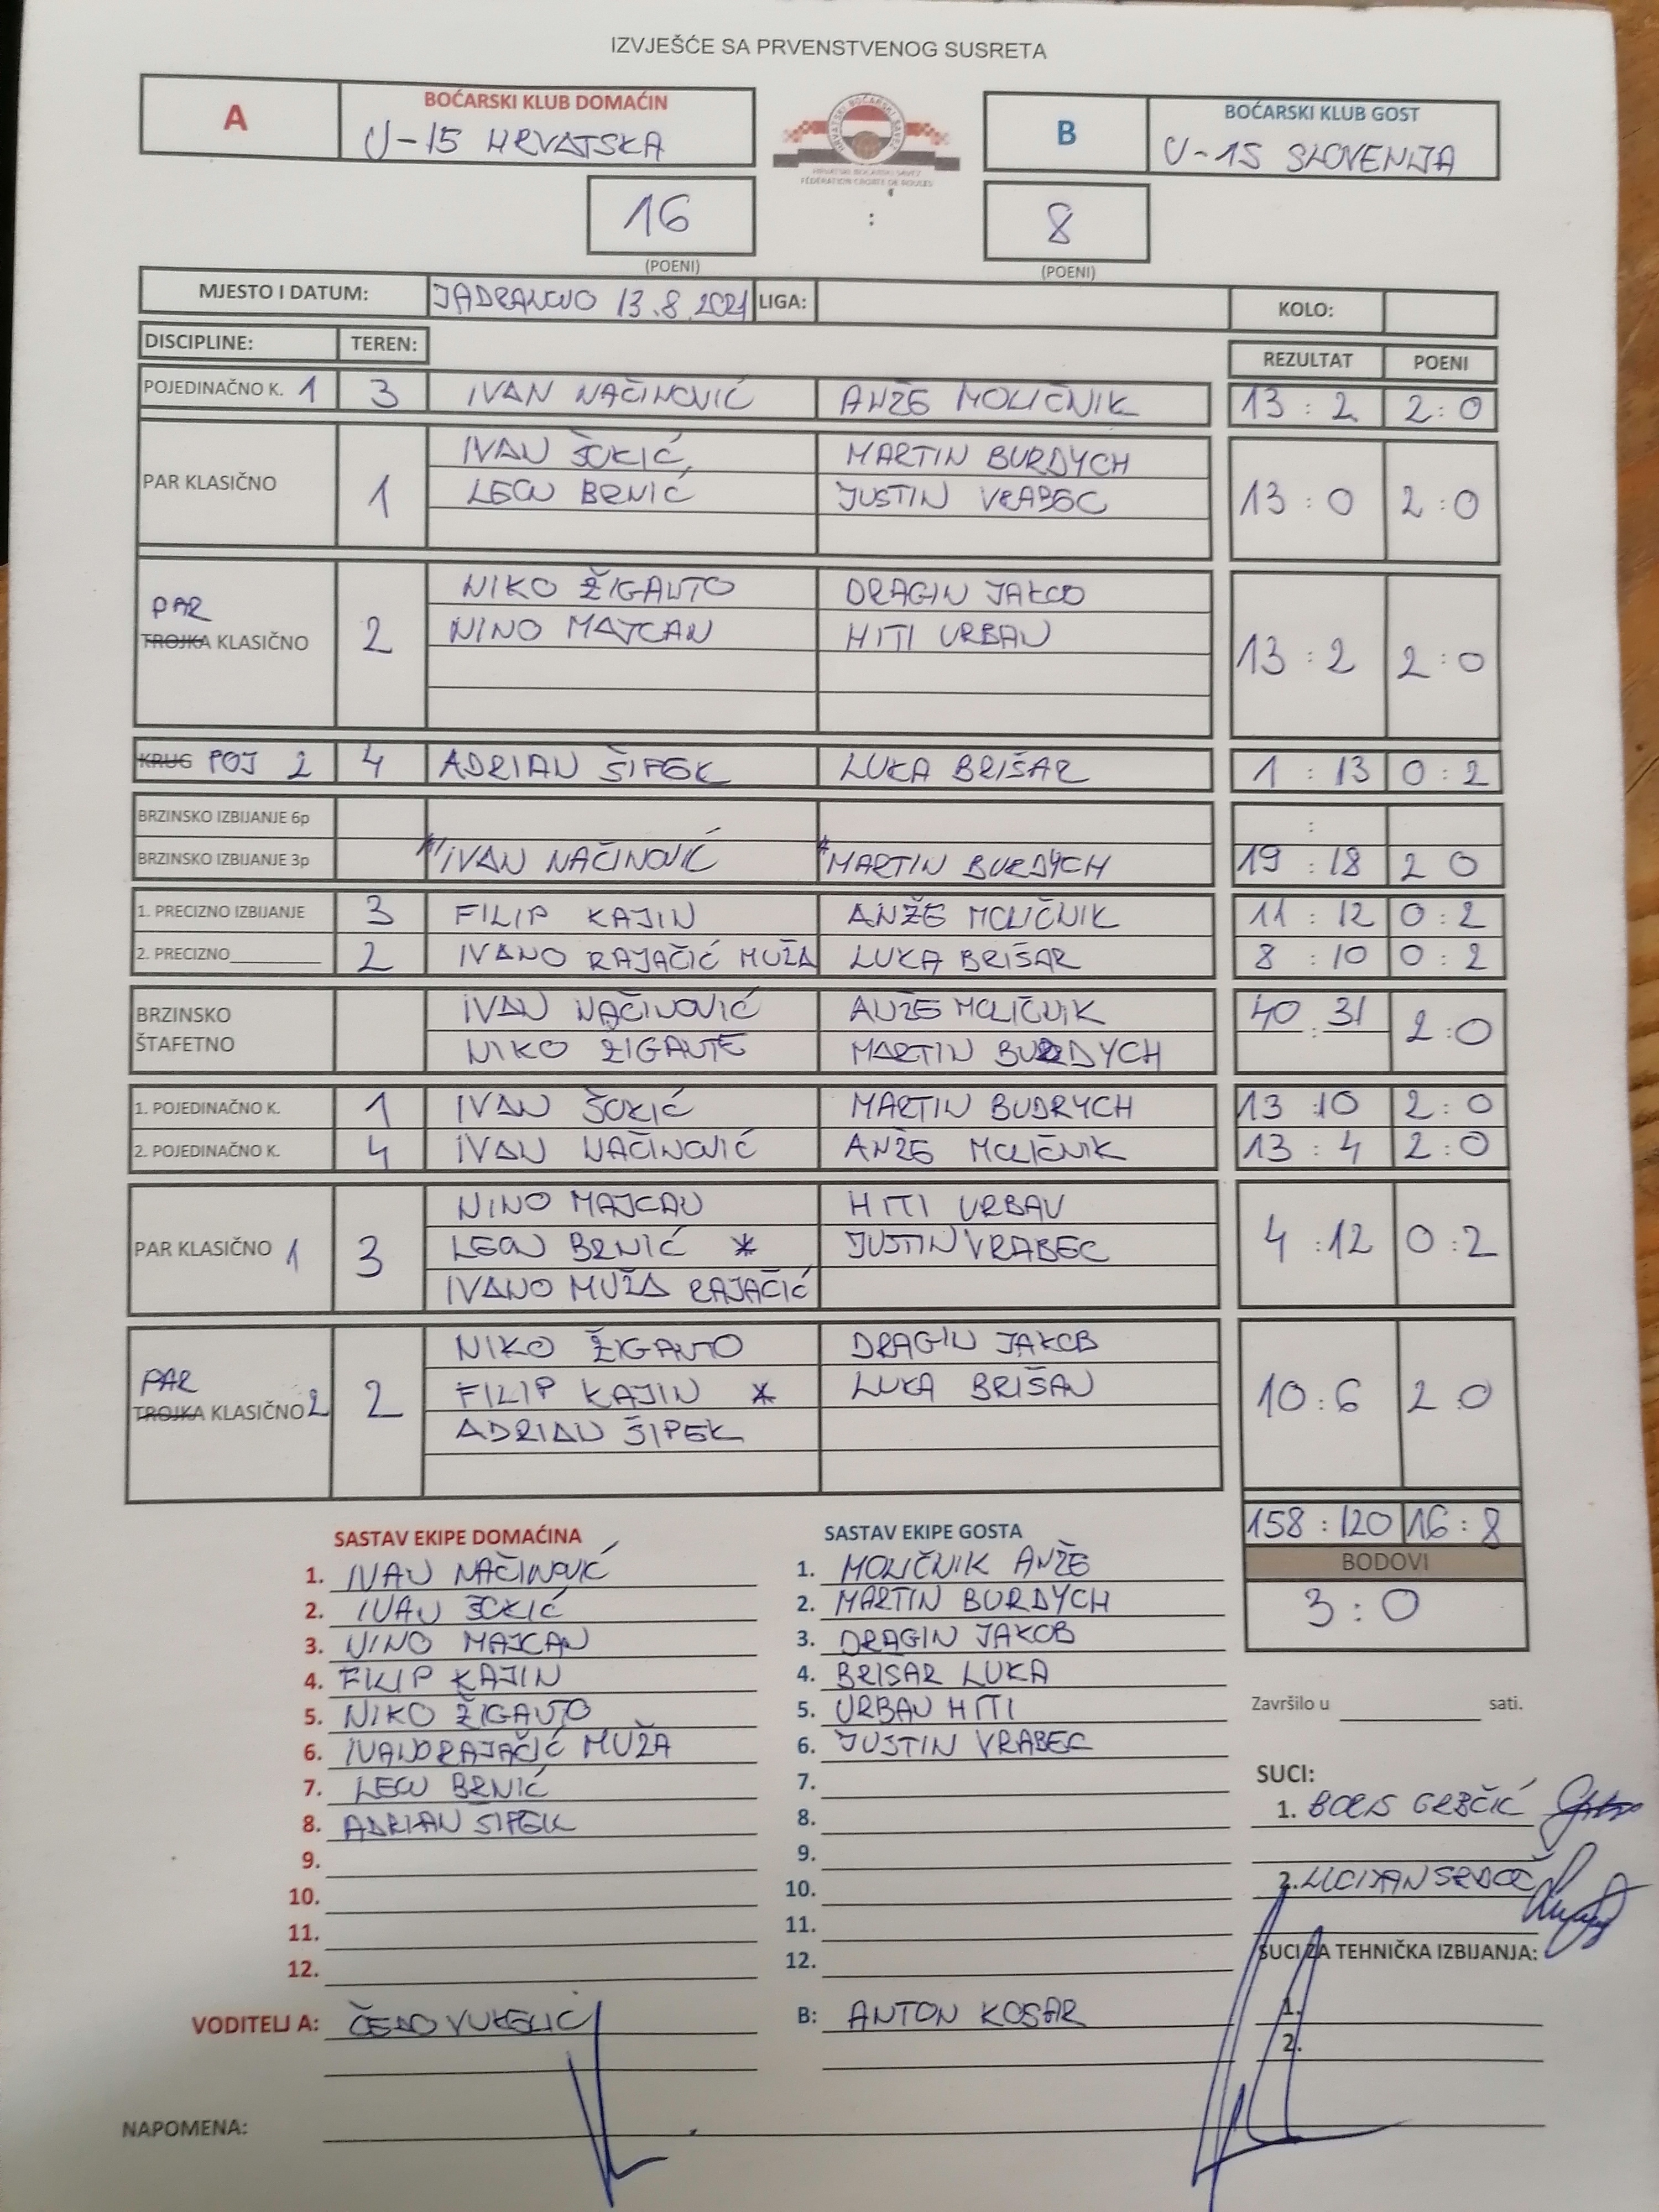 IZVJEŠĆE SA PRVENSTVENOG SUSRETA
A BOĆARSKI KLUB DOMAĆIN B BOĆARSKI KLUB GOST
U-15 HRVATSKA U-15 SLOVENIJA
HRVATSKI BOĆARSKI SAVEZ
16 : 8
(POENI) (POENI)
MJESTO I DATUM: JADRANOVO 13.8.2021 LIGA: KOLO:
DISCIPLINE: TEREN: REZULTAT POENI
POJEDINAČNO K. 1 3 IVAN NAČINOVIĆ ANŽE MOLIČNIK 13 : 2 2 : 0
IVAN ŠOKIĆ MARTIN BURDYCH
PAR KLASIČNO 1 LEON BRNIĆ JUSTIN VRABEC 13 : 0 2 : 0
NIKO ŽIGANTO DRAGIN JAKOB
PAR
TROJKA KLASIČNO 2 NINO MAJCAN HITI URBAN 13 : 2 2 : 0
KRUG POJ 2 4 ADRIAN ŠIPEK LUKA BRIŠAR 1 : 13 0 : 2
BRZINSKO IZBIJANJE 6p :
BRZINSKO IZBIJANJE 3p IVAN NAČINOVIĆ *MARTIN BURDYCH 19 : 18 2 0
1. PRECIZNO IZBIJANJE 3 FILIP KAJIN ANŽE MOLIČNIK 11 : 12 0 : 2
2. PRECIZNO 2 IVANO RAJAČIĆ MUŽA LUKA BRIŠAR 8 : 10 0 : 2
BRZINSKO IVAN NAČINOVIĆ ANŽE MOLIČNIK 40 : 31 2 : 0
ŠTAFETNO NIKO ŽIGANTE MARTIN BURDYCH
1. POJEDINAČNO K. 1 IVAN ŠOKIĆ MARTIN BUDRYCH 13 : 10 2 : 0
2. POJEDINAČNO K. 4 IVAN NAČINOVIĆ ANŽE MOLIČNIK 13 : 4 2 : 0
NINO MAJCAN HITI URBAN
PAR KLASIČNO 1 3 LEON BRNIĆ * JUSTIN VRABEC 4 : 12 0 : 2
IVANO MUŽA RAJAČIĆ
NIKO ŽIGANTO DRAGIN JAKOB
PAR
TROJKA KLASIČNO 2 2 FILIP KAJIN * LUKA BRIŠAN 10 : 6 2 0
ADRIAN ŠIPEK
158 : 120 16 : 8
SASTAV EKIPE DOMAĆINA SASTAV EKIPE GOSTA
BODOVI
3 : 0
1. IVAN NAČINOVIĆ 1. MOLIČNIK ANŽE
2. IVAN ŠOKIĆ 2. MARTIN BURDYCH
3. NINO MAJCAN 3. DRAGIN JAKOB
4. FILIP KAJIN 4. BRISAR LUKA
5. NIKO ŽIGANTO 5. URBAN HITI
6. IVANO RAJAČIĆ MUŽA 6. JUSTIN VRABEC
7. LEON BRNIĆ 7.
8. ADRIAN ŠIPEK 8.
9. 9.
10. 10.
11. 11.
12. 12.
Završilo u sati.
SUCI:
1. BORIS GRBČIĆ
2. LUCIJAN SRDOČ
SUCI ZA TEHNIČKA IZBIJANJA:
1.
2.
VODITELJ A: ČEDO VUKELIĆ B: ANTON KOSAR
NAPOMENA: